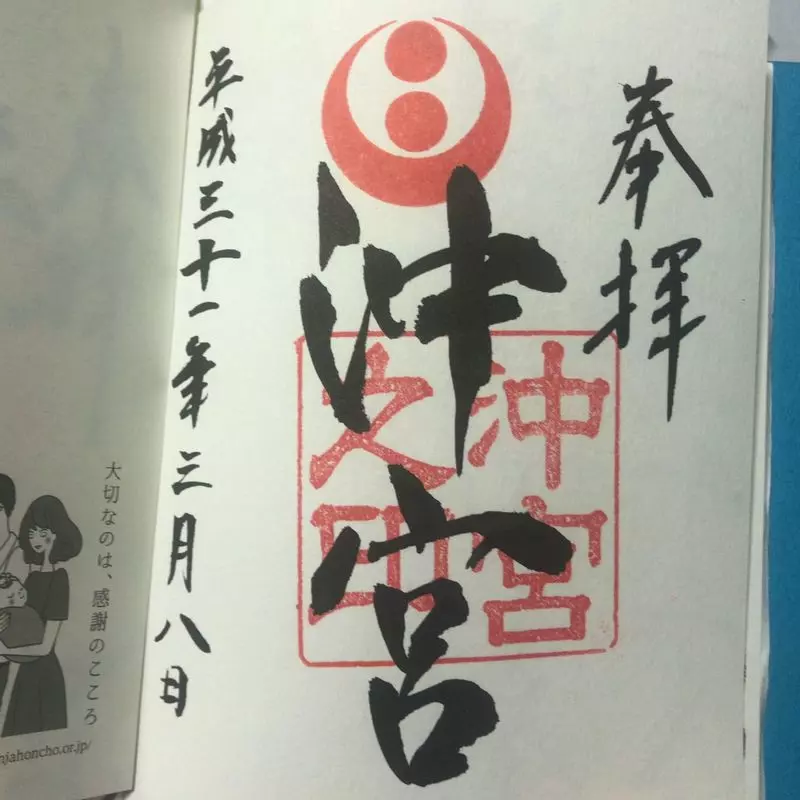 奉拝
沖宮
沖宮
之印
平成三十一年三月八日
大切なのは、感謝のこころ
njahoncho.or.jp/